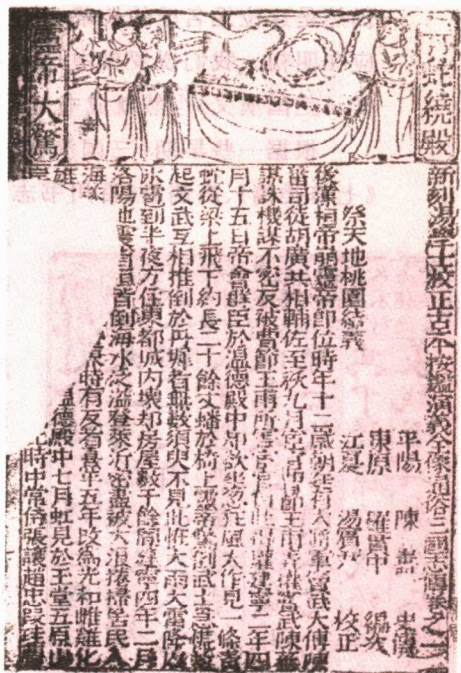 青蛇繞殿
靈帝大驚
新刻湯學士校正古本按鑑演義全像通俗三國志傳卷之一
平陽 陳壽 史傳
東原 羅貫中 編次
江夏 湯賓尹 校正
祭天地桃園結義
後漢桓帝崩靈帝即位時年十二歲朝廷有大將軍竇武大傅陳
蕃司徒胡廣共相輔佐至秋九月宦官曹節王甫弄權竇武陳蕃
謀誅機謀不密反被曹節王甫所害宦官得權建寧二年四
月十五日帝會群臣於溫德殿中却欲陞座狂風大作見一條青
蛇從梁上飛下約長二十餘丈蟠於椅上靈帝驚倒武士急慌救
起文武互相推倒於丹墀者無數須臾不見此時大雨大雷降以
冰雹到半夜方住東都城內壞却房屋數千餘間建寧四年二月
洛陽地震省垣皆倒海水泛溢登萊沂密盡被大浪捲掃居民入
海遂 時有反者熹平五年改為光和雌雞化
雄 溫德殿中七月虹見於玉堂五原山
岸 時中常侍張讓趙忠段珪